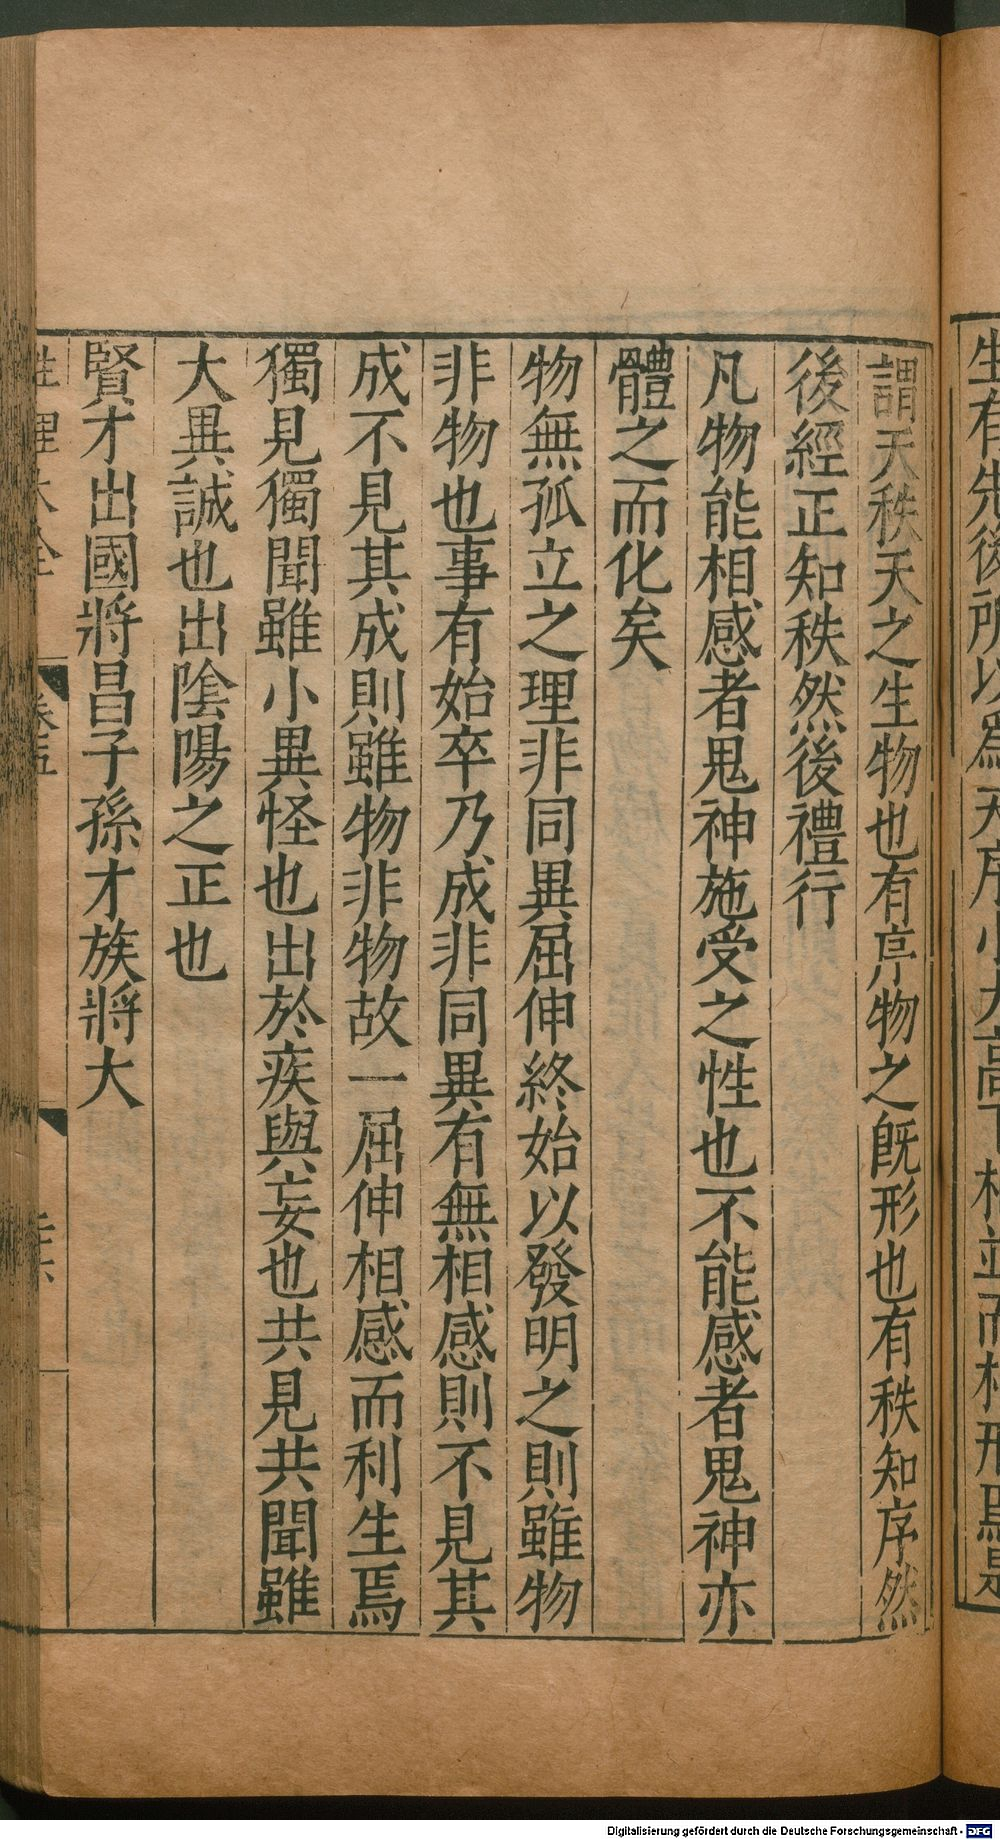 生有先後所以爲天序小大高下相並而相形焉是
謂天秩天之生物也有序物之旣形也有秩知序然
後經正知秩然後禮行
凡物能相感者鬼神施受之性也不能感者鬼神亦
體之而化矣
物無孤立之理非同異屈伸終始以發明之則雖物
非物也事有始卒乃成非同異有無相感則不見其
成不見其成則雖物非物故一屈伸相感而利生焉
獨見獨聞雖小異怪也出於疾與妄也共見共聞雖
大異誠也出陰陽之正也
賢才出國將昌子孫才族將大
性理大全 卷五
Digitalisierung gefördert durch die Deutsche Forschungsgemeinschaft - DFG